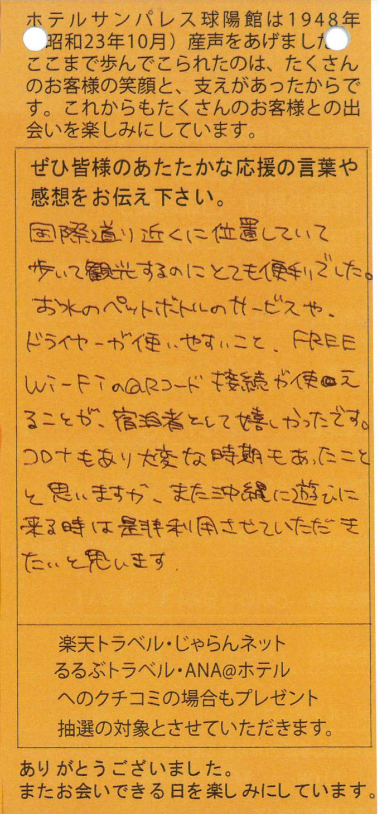 ホテルサンパレス球陽館は1948年
昭和23年10月）産声をあげました
ここまで歩んでこられたのは、たくさん
のお客様の笑顔と、支えがあったからで
す。これからもたくさんのお客様との出
会いを楽しみにしています。
ぜひ皆様のあたたかな応援の言葉や
感想をお伝え下さい。
国際通り近くに位置していて
歩いて観光するのにとても便利でした。
お水のペットボトルのサービスや、
ドライヤーが使いやすいこと、FREE
Wi-FiのQRコード接続が使え
ることが、宿泊者として嬉しかったです。
コロナもあり大変な時期もあったこと
と思いますが、また沖縄に遊びに
来る時は是非利用させていただき
たいと思います.
楽天トラベル・じゃらんネット
るるぶトラベル・ANA@ホテル
へのクチコミの場合もプレゼント
抽選の対象とさせていただきます。
ありがとうございました。
またお会いできる日を楽しみにしています。